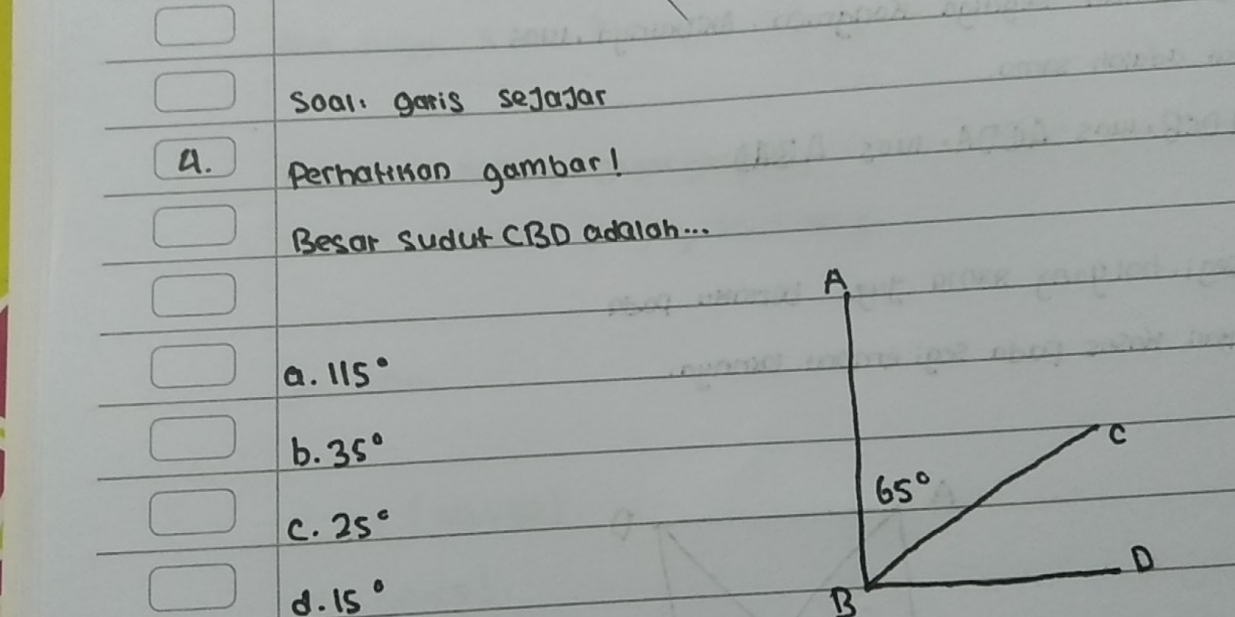 Soal: garis sejajar
4. Perhatikan gambar!
Besar sudut CBD adalah...
a. 115°
b. 35°
c. 25°
d. 15°
A
C
65°
D
B